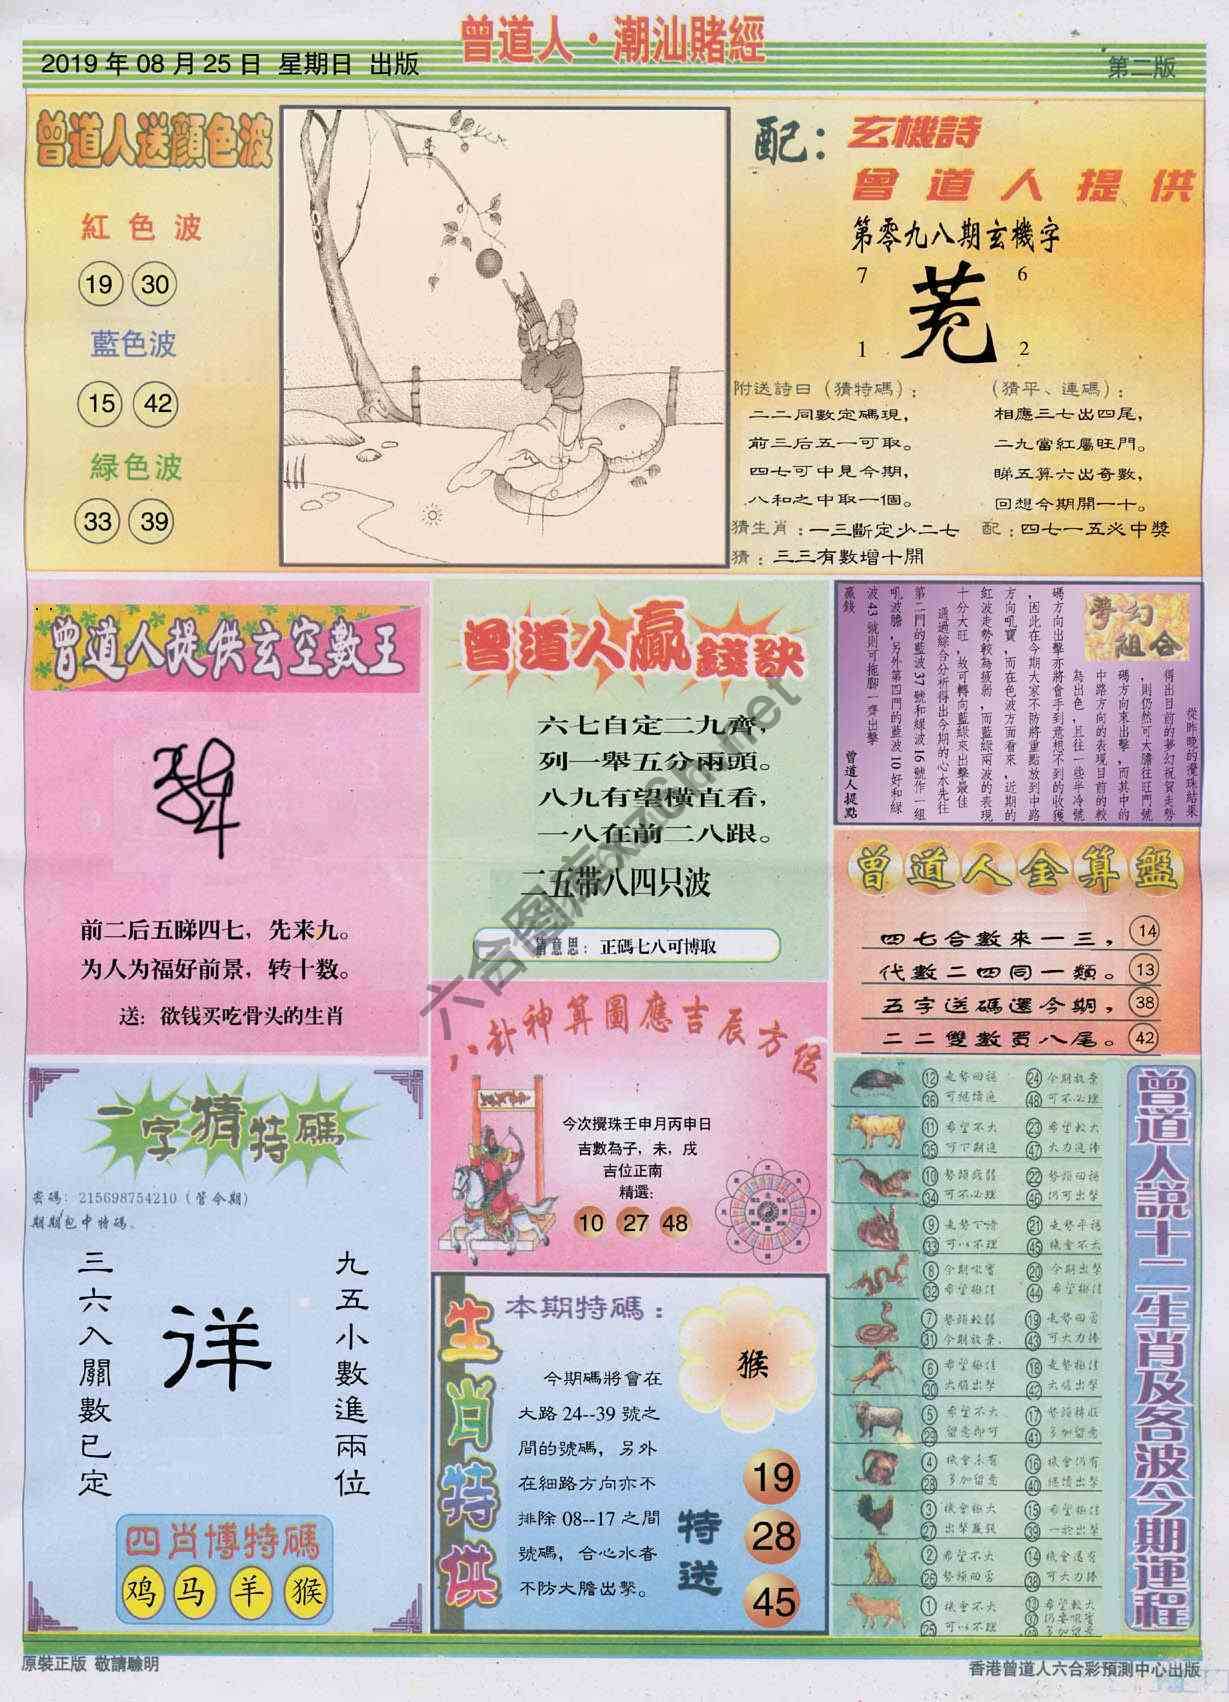 曾道人·潮汕賭經
2019年08月25日 星期日 出版
第二版
曾道人送顔色波
紅色波
19 30
藍色波
15 42
緑色波
33 39
配：玄機詩
曾道人提供
第零九八期玄機字
7 6
1 2
附送詩曰（猜特碼）：
二二同數定碼現，
前三后五一可取。
四七可中見今期，
八和之中取一個。
（猜平、連碼）：
相應三七出四尾，
二九當紅屬旺門。
睇五算六出奇數，
回想今期開一十。
猜生肖：一三斷定少二七 配：四七一五必中獎
猜：三三有數增十開
曾道人提供玄空數王
前二后五睇四七，先来九。
为人为福好前景，转十数。
送：欲钱买吃骨头的生肖
曾道人贏錢訣
六七自定二九齊，
列一舉五分兩頭。
八九有望橫直看，
一八在前二八跟。
二五带八四只波
猜意思：正碼七八可博取
夢幻組合
從昨晚的攪珠結果
得出目前的夢幻祝賀走勢
，則仍然可大膽往旺門號
碼方向來出擊，而其中的
中路方向的表現目前的較
為出色，且往一些半冷號
碼方向出擊亦將會手到意想不到的收獲
，因此在今期大家不防將重點放到中路
方向吼寶，而在色波方面看來，近期的
紅波走勢較為疲弱，而藍綠兩波的表現
十分大旺，故可轉向藍綠來出擊最佳
通過綜合分析得出今期的心水先往
第二門的藍波37號和綠波16號作一組
吼波膽，另外第四門的藍波10好和綠
波43號則可拖腳一齊出擊
贏錢
曾道人提點
曾道人金算盤
四七合數來一三， 14
代數二四同一類。 13
五字送碼還今期， 38
二二雙數買八尾。 42
八卦神算圖應吉辰方位
今次攪珠壬申月丙申日
吉數為子，未，戌
吉位正南
精選：
10 27 48
一字猜特碼
密碼：215698754210（管今期）
期期包中特碼。
三六入關數已定
九五小數進兩位
四肖博特碼
鸡 马 羊 猴
生肖特供
本期特碼：
猴
今期碼將會在
大路24--39號之
間的號碼，另外
在細路方向亦不
排除08--17之間
號碼，合心水者
不防大膽出擊。
特送
19
28
45
曾道人説十二生肖及各波今期運程
12 走勢回穩 24 今期放棄
36 可繼續追 48 可不必理
11 希望不大 23 希望較大
35 可下期追 47 大力追捧
10 勢頭疲弱 22 勢頭回穩
34 可不必理 46 仍可出擊
9 走勢下滑 21 走勢平穩
33 可以不理 45 機會不大
8 今期吼寶 20 今期出擊
32 希望極佳 44 希望極佳
7 勢頭較弱 19 走勢回昇
31 今期放棄 43 可大力捧
6 希望極佳 18 走勢極佳
30 大膽出擊 42 大膽出擊
5 希望不大 17 勢頭轉旺
29 留意即可 41 多加留意
4 機會未有 16 機會仍有
28 多加留意 40 繼續出擊
3 機會極大 15 希望極佳
27 出擊贏錢 39 一於出擊
2 希望不大 14 機會還有
26 勢頭回落 38 可大力捧
1 機會不大 13 希望較大
25 可以不理 37 仍要吼寶
六合图库6xz6hh.net
原裝正版 敬請驗明
香港曾道人六合彩預測中心出版